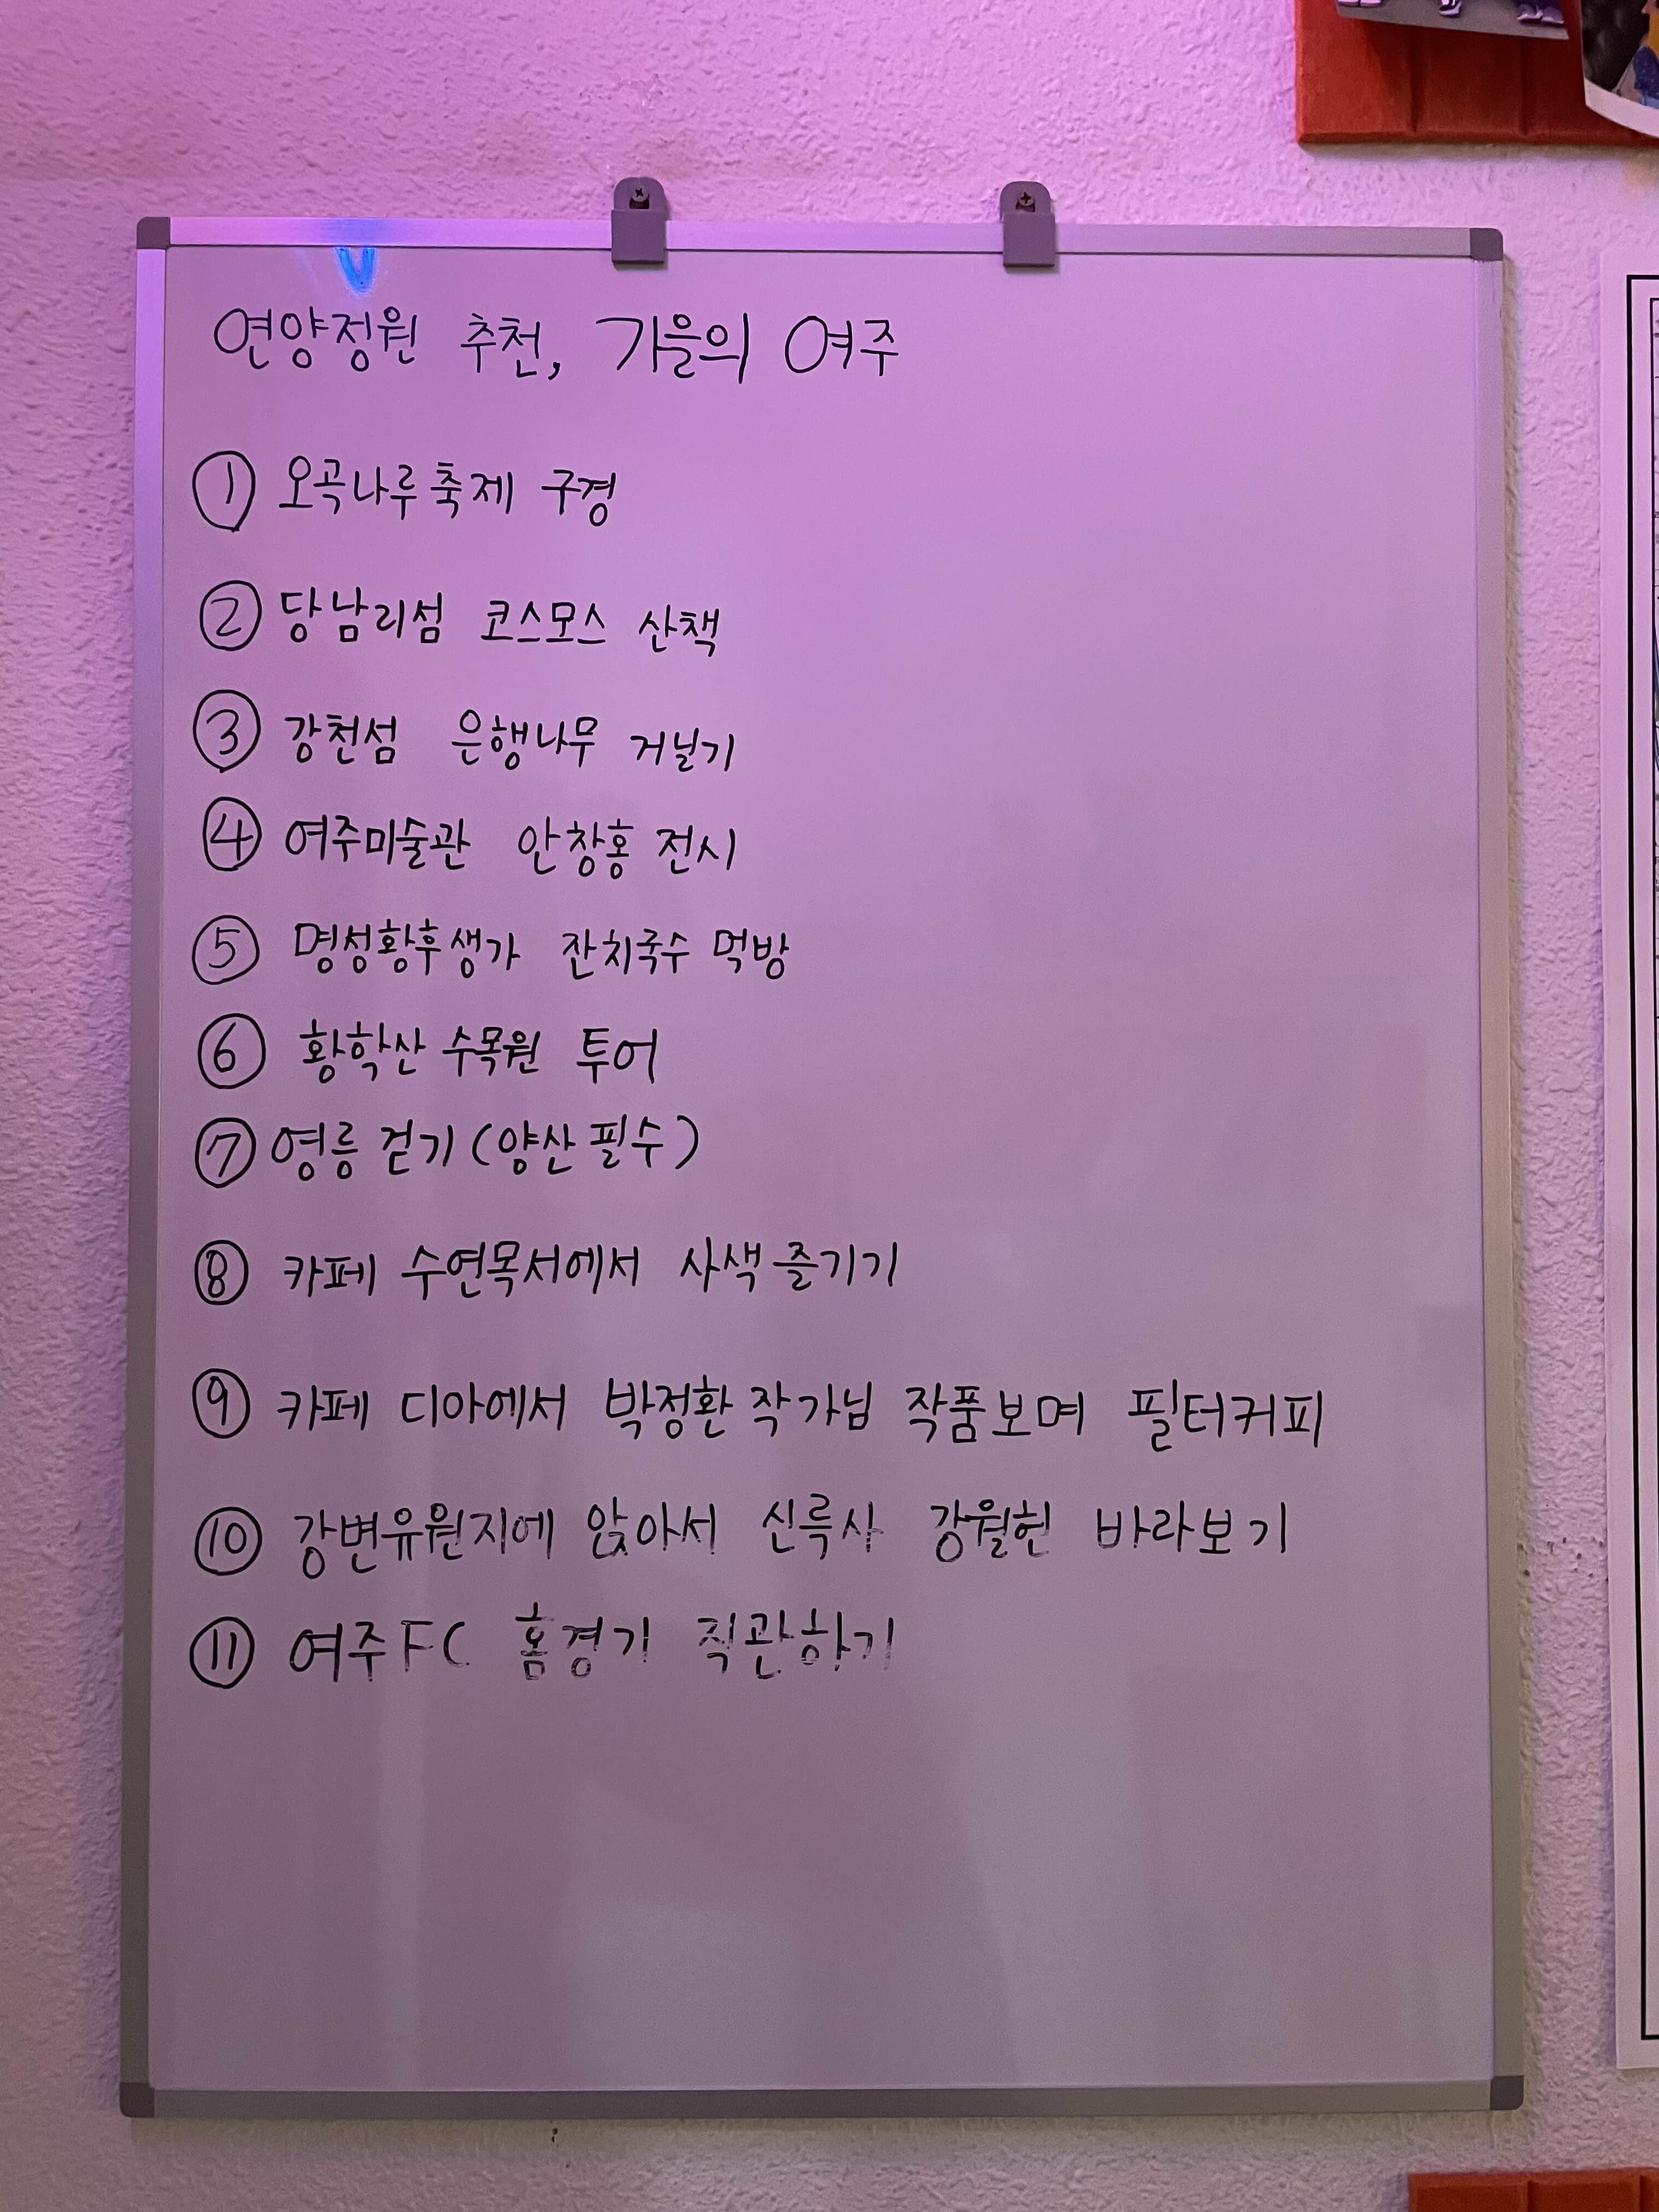 연양정원 추천, 가을의 여주
① 오곡나루축제 구경
② 당남리섬 코스모스 산책
③ 강천섬 은행나무 거닐기
④ 여주미술관 안창홍 전시
⑤ 명성황후생가 잔치국수 먹방
⑥ 황학산 수목원 투어
⑦ 영릉 걷기 (양산 필수)
⑧ 카페 수연목서에서 사색 즐기기
⑨ 카페 디아에서 박정환 작가님 작품보며 필터커피
⑩ 강변유원지에 앉아서 신륵사 강월헌 바라보기
⑪ 여주FC 홈경기 직관하기